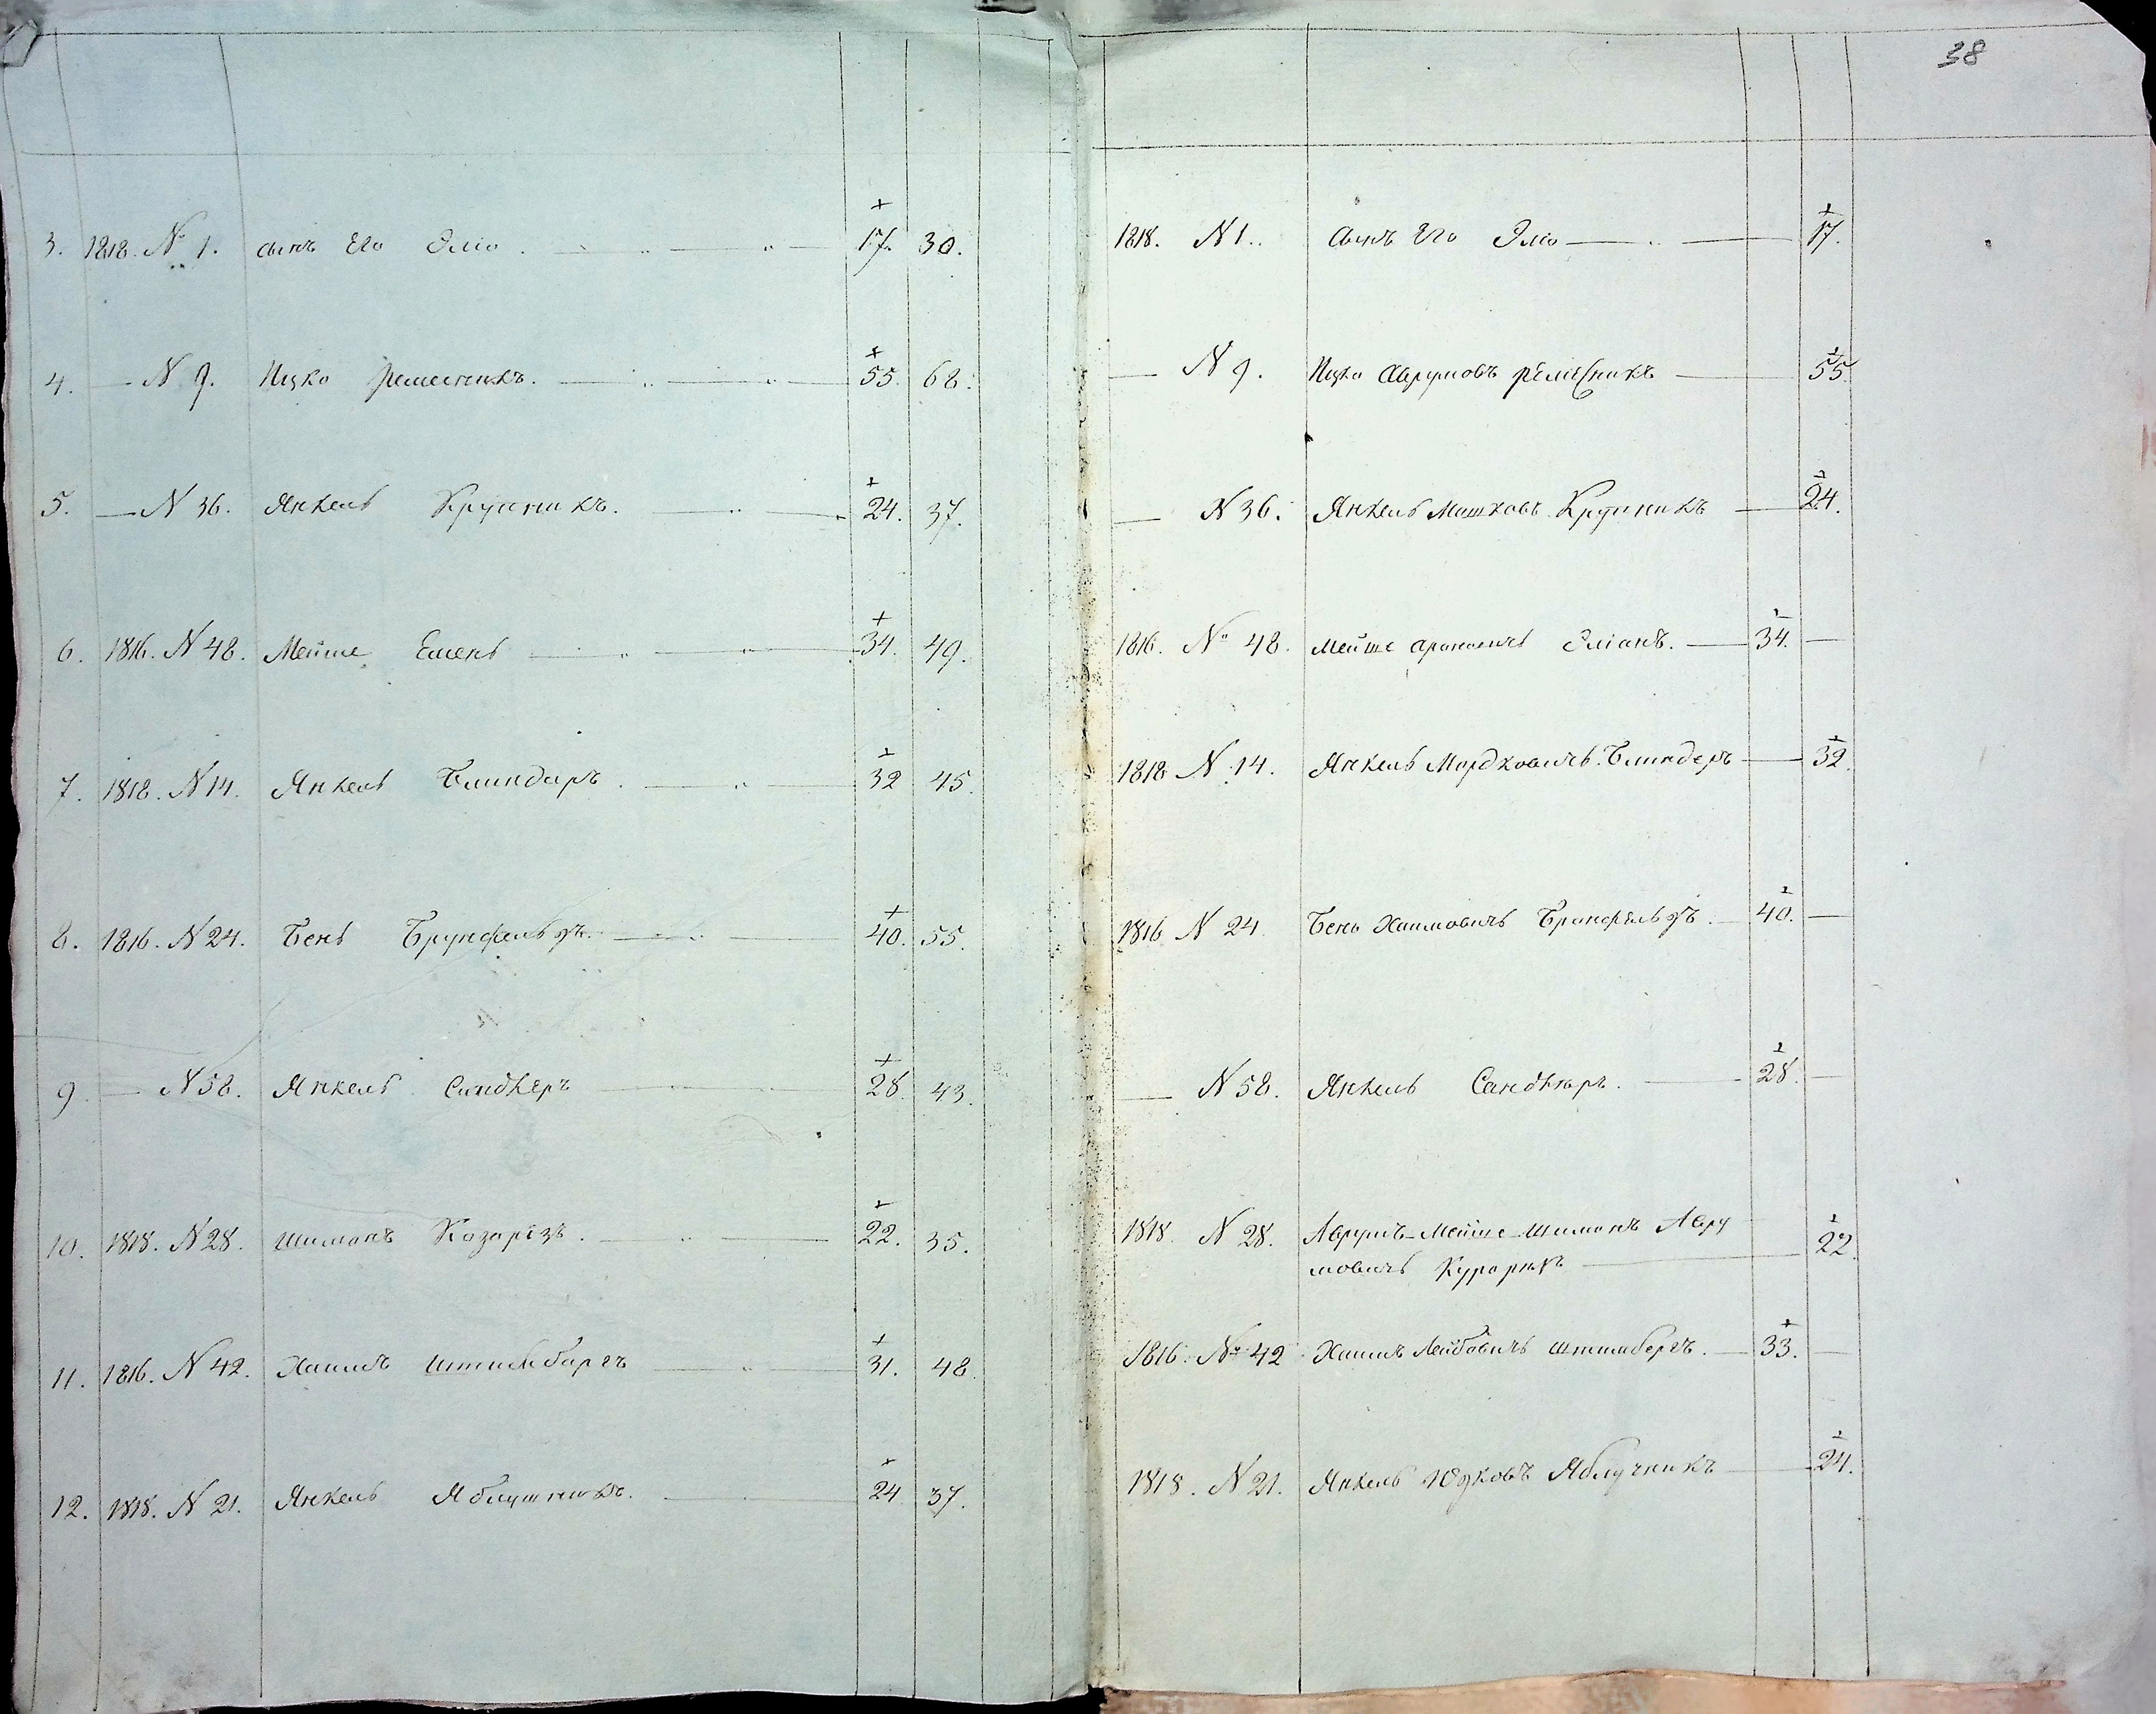 38
3. 1818. № 1. сынъ Его Эліо. 17. 30.
4. — N 9. Ицко ремесникъ. 55. 68.
5. — N 36. Янкель Крупникъ. 24. 37.
6. 1816. N 48. Мейше Елень 34. 49.
7. 1818. N 14. Янкель Блиндаръ. 32 45.
8. 1816. N 24. Бень Брунфельдъ. 40. 55.
9. — N 58. Янкель Сандлеръ 28. 43.
10. 1818. N 28. Шимонъ Козорѣзъ. 22. 35.
11. 1816. N 42. Хаимъ Штимбаргъ 31. 48.
12. 1818. N 21. Янкель Яблушникъ. 24 37.
1818. N 1.. Сынъ Его Эліо 17.
— N 9. Ицко Аврумовъ ремесникъ 55.
— N 36. Янкель Машковъ Крупникъ 24.
1816. № 48. Мейше Ароновичъ Эліанъ. 34. —
1818 N 14. Янкель Мордковичъ Блиндеръ 32.
1816 N 24 Бень Хаимовичъ Бранфельдъ. 40. —
— N 58. Янкель Сандлюръ. 28. —
1818 N 28. Аврумъ-Мейше-Шимонъ Авру
мовичъ 22.
1816. № 42 Хаимъ Лейбовичъ Штимбергъ. 33. —
1818. N 21. Янкель Юдковъ Яблучникъ 24.